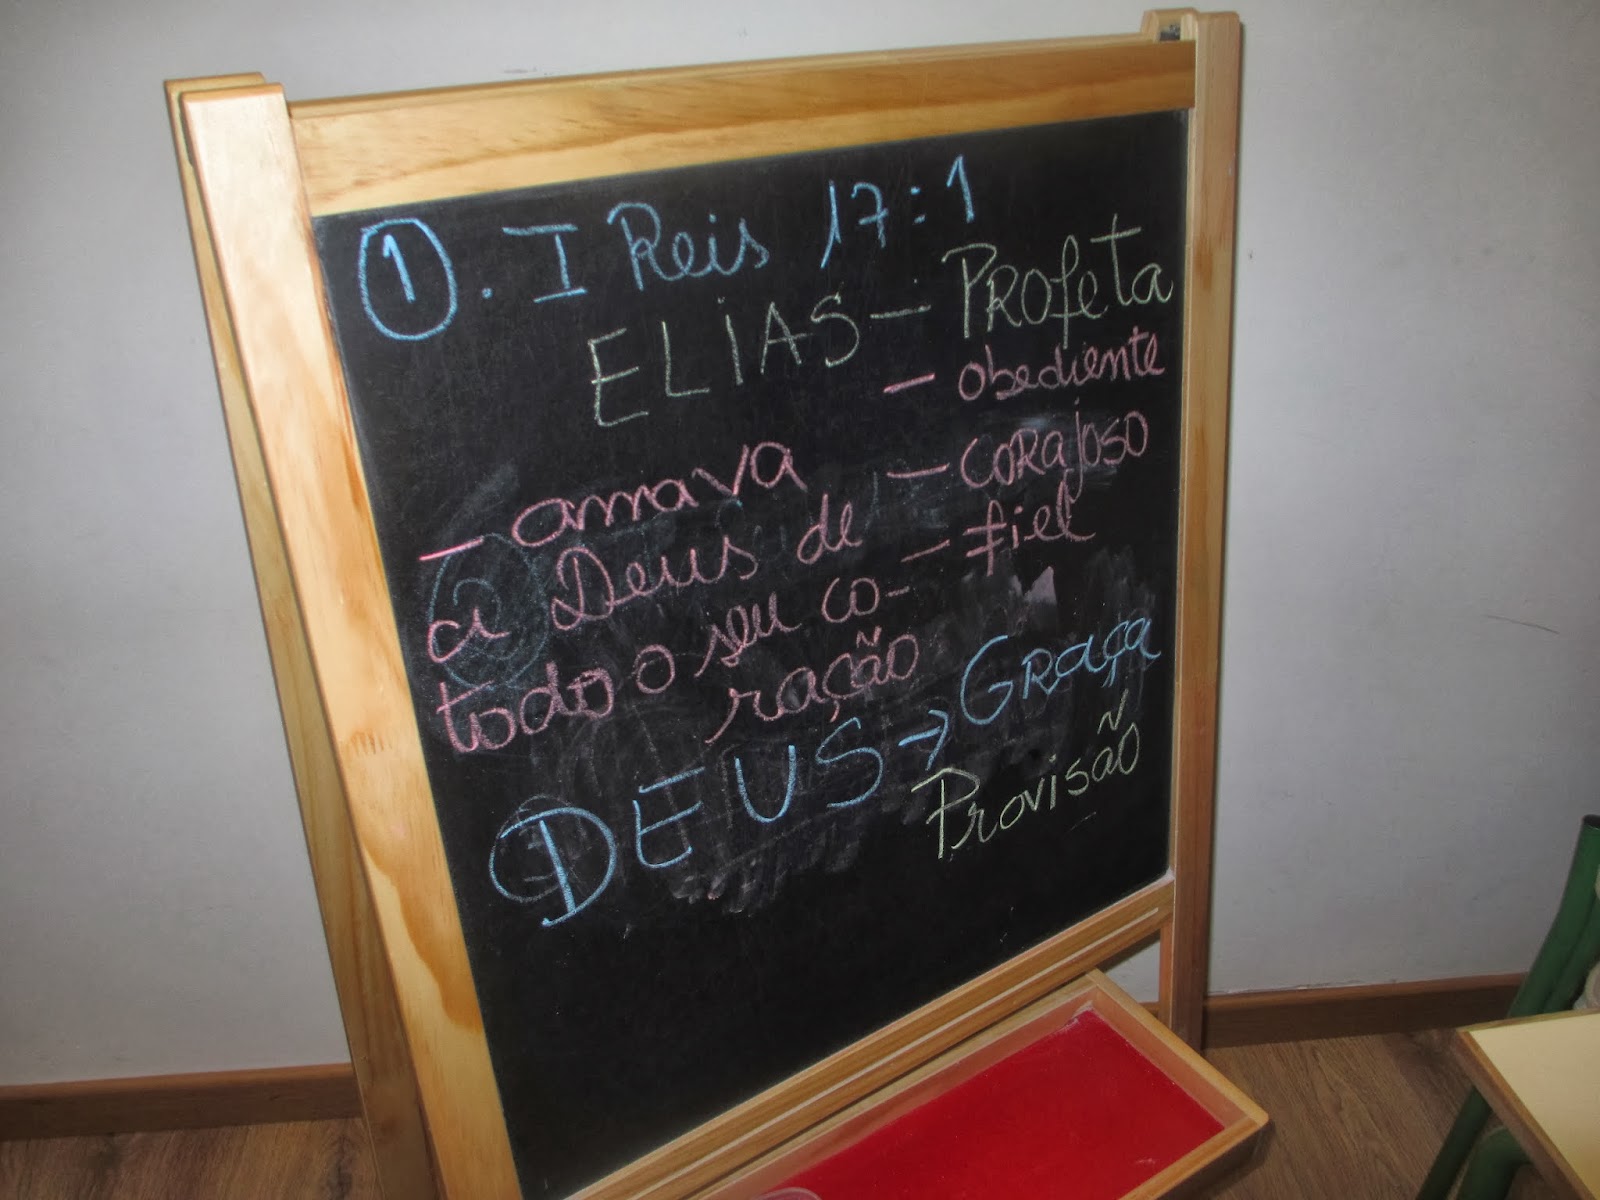 1. I Reis 17:1
ELIAS - PROfeta
- obediente
- amava - CORAJOSO
a Deus de - fiel
todo o seu co-
ração
DEUS → GRaça
Provisão